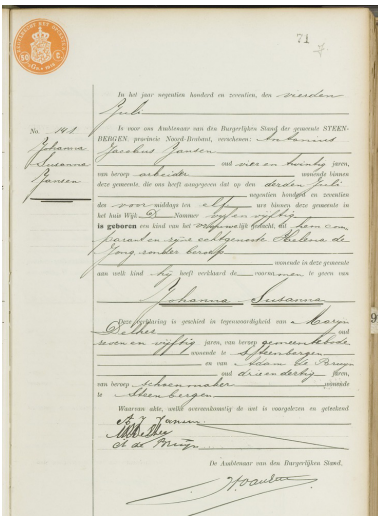 71
50 C
In het jaar negentien honderd en zeventien, den vierden
Juli
is voor ons Ambtenaar van den Burgerlijken Stand der gemeente STEEN-
BERGEN, provincie Noord-Brabant, verschenen: Antonius
No. 191.
Johanna
Susanna
Jansen
Jacobus Jansen
oud vier en twintig jaren,
van beroep arbeider wonende binnen
deze gemeente, die ons heeft aangegeven dat op den derden Juli
negentien honderd en zeventien
des voor middags ten elf ure binnen deze gemeente
in het huis Wijk D Nommer vijf en vijftig
is geboren een kind van het vrouwelijk geslacht, uit hem com
parant en zijne echtgenoote Helena de
Jong, zonder beroep
wonende in deze gemeente
aan welk kind hij heeft verklaard de voornamen te geven van
Johanna Susanna
Deze verklaring is geschied in tegenwoordigheid van Marijn
oud
zeven en vijftig jaren, van beroep gemeentebode
wonende te Steenbergen
en van Adam de Bruyn
oud drie en dertig jaren,
van beroep schoenmaker wonende
te Steenbergen
Waarvan akte, welke overeenkomstig de wet is voorgelezen en geteekend
A. J. Jansen
A de Bruijn
De Ambtenaar van den Burgerlijken Stand,
9